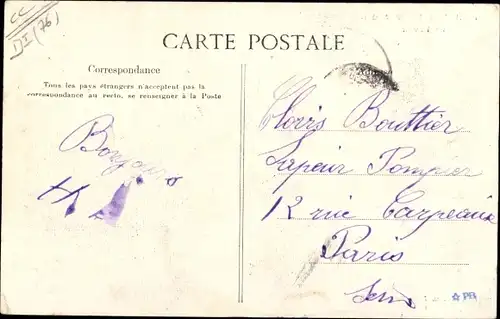 CC
DI (76)
CARTE POSTALE
Correspondance
Tous les pays étrangers n'acceptent pas la
correspondance au recto, se renseigner à la Poste
Bonjour
H
Clovis Bouttier
Sapeur Pompier
12 rue Carpeaux
Paris
Seine
☆ PB